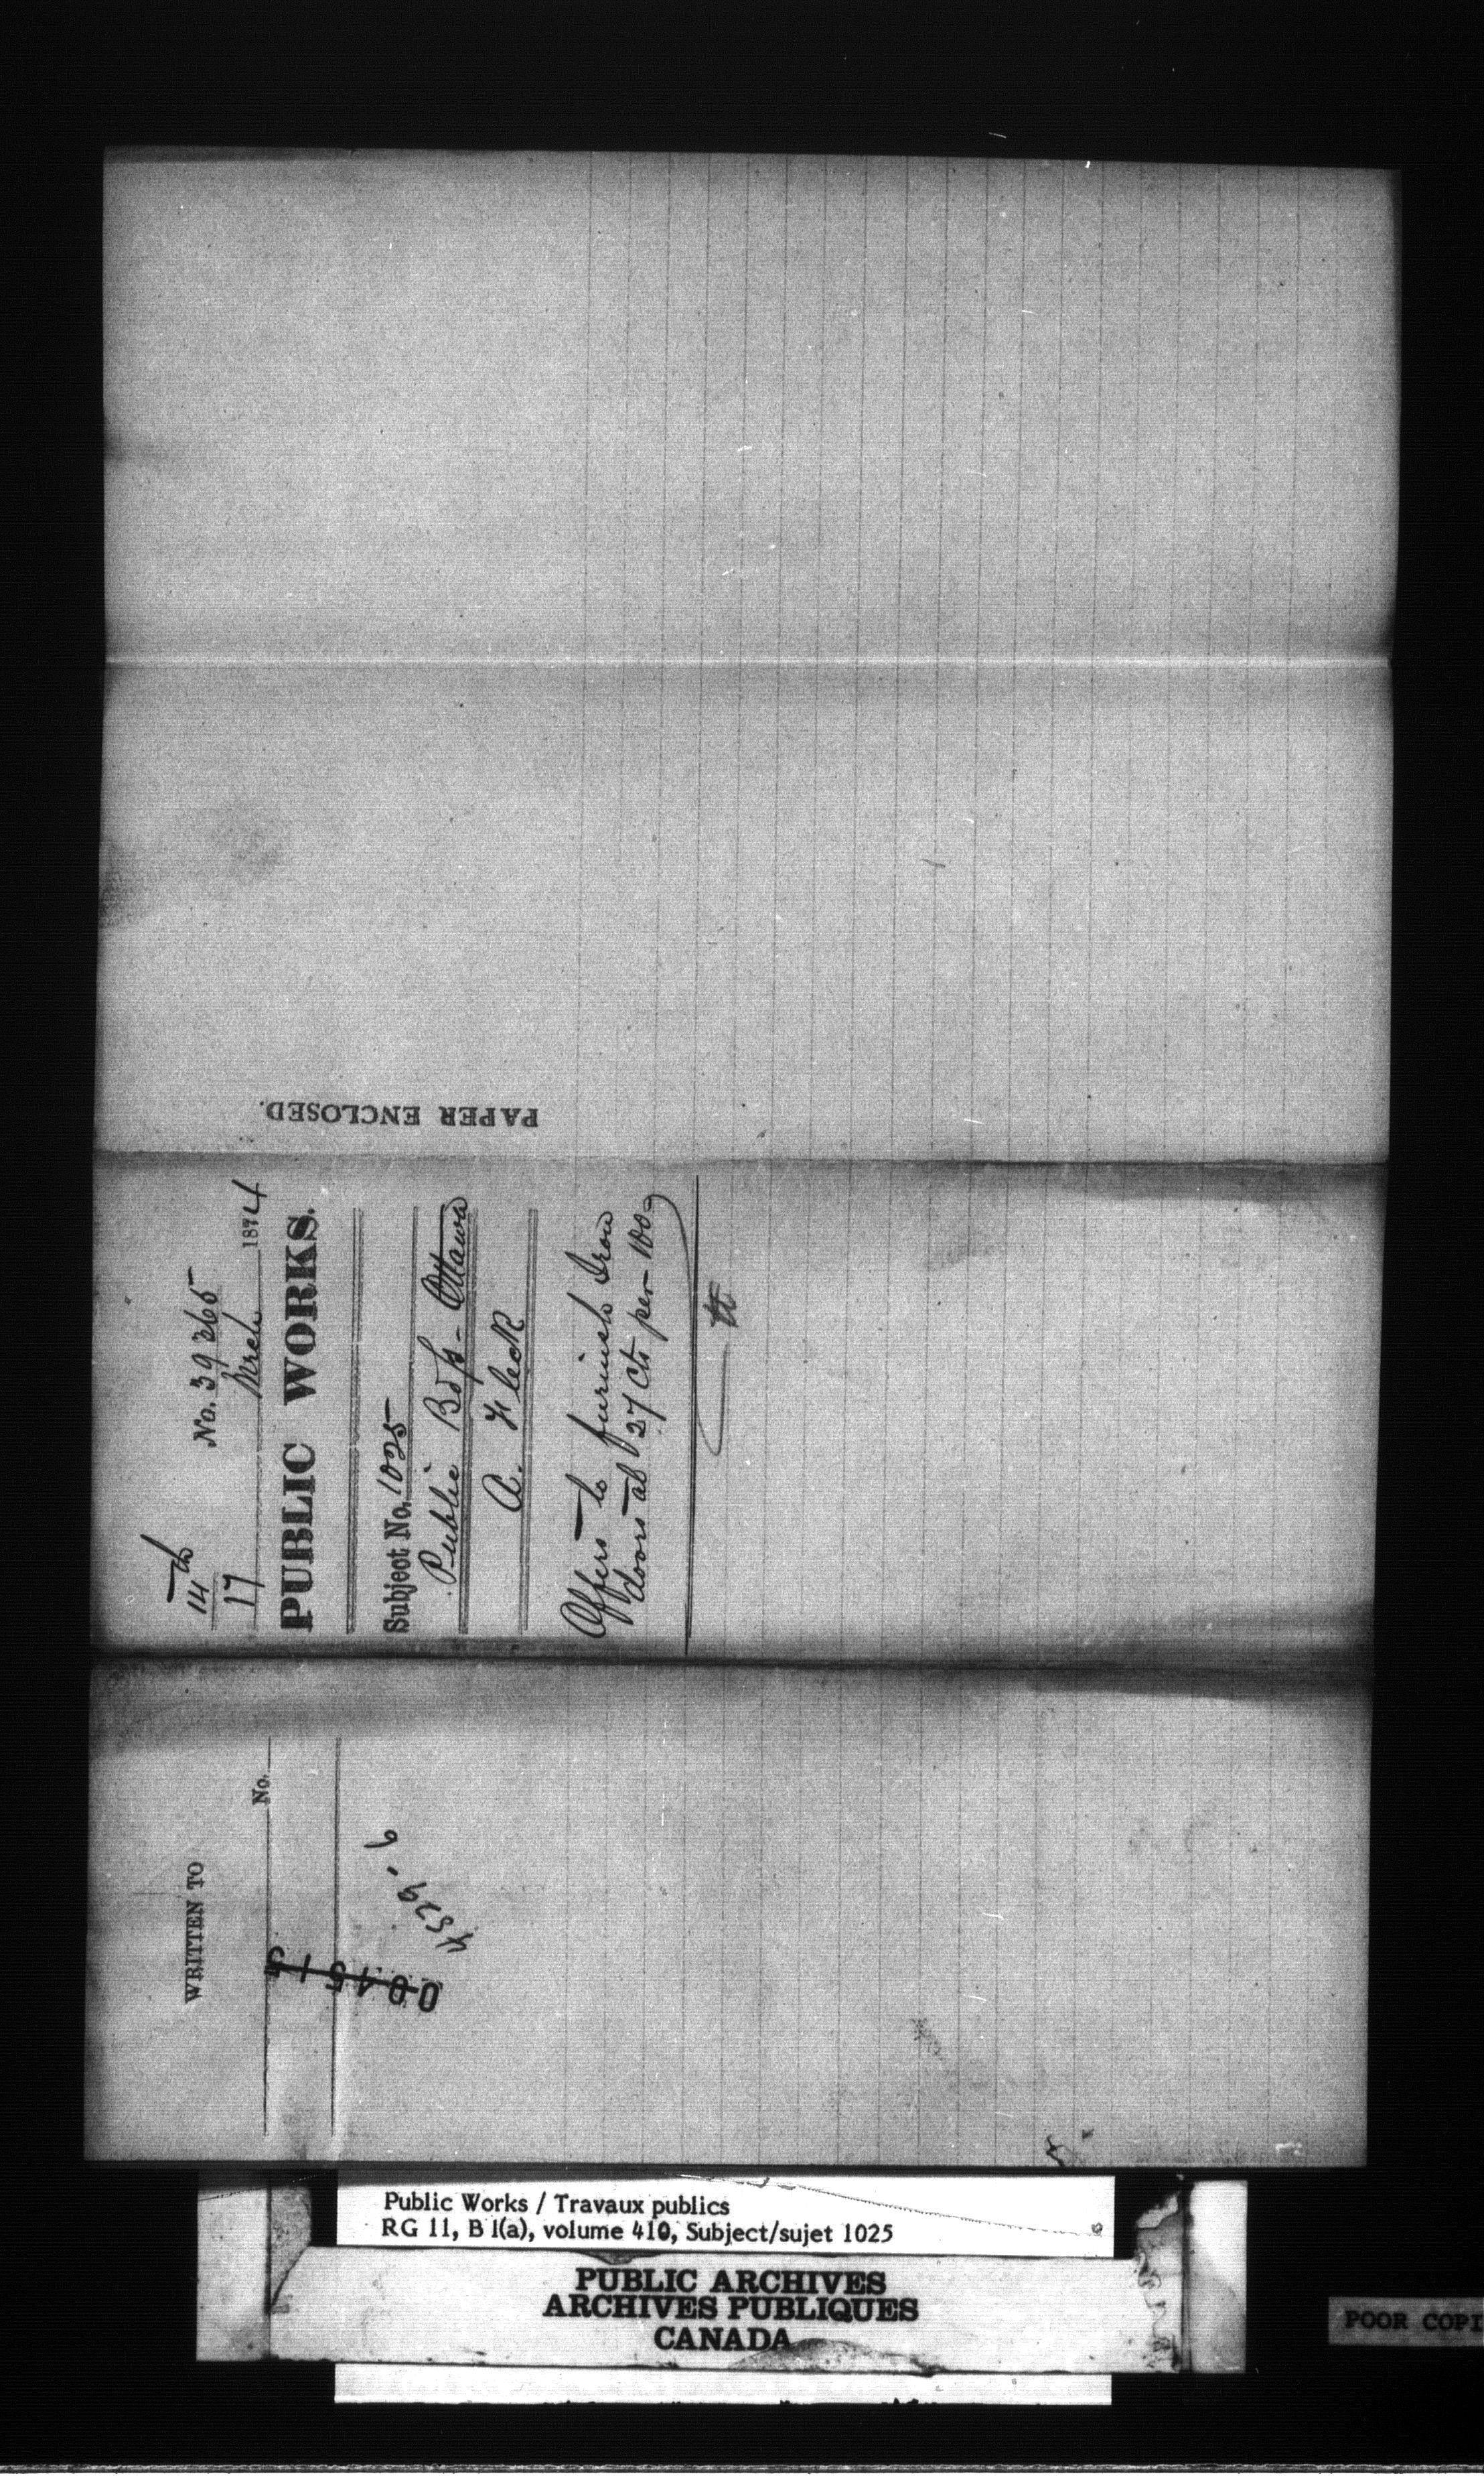 PAPER ENCLOSED.
14th
No. 39265
17 March 1874
PUBLIC WORKS.
Subject No. 1025
Public Bdgs - Ottawa
A. Fleck
Offers to furnish Iron
doors at 27 cts per 100
WRITTEN TO
No.
004515
4529-6
Public Works / Travaux publics
RG 11, B 1(a), volume 410, Subject/sujet 1025
PUBLIC ARCHIVES
ARCHIVES PUBLIQUES
CANADA
POOR COPI